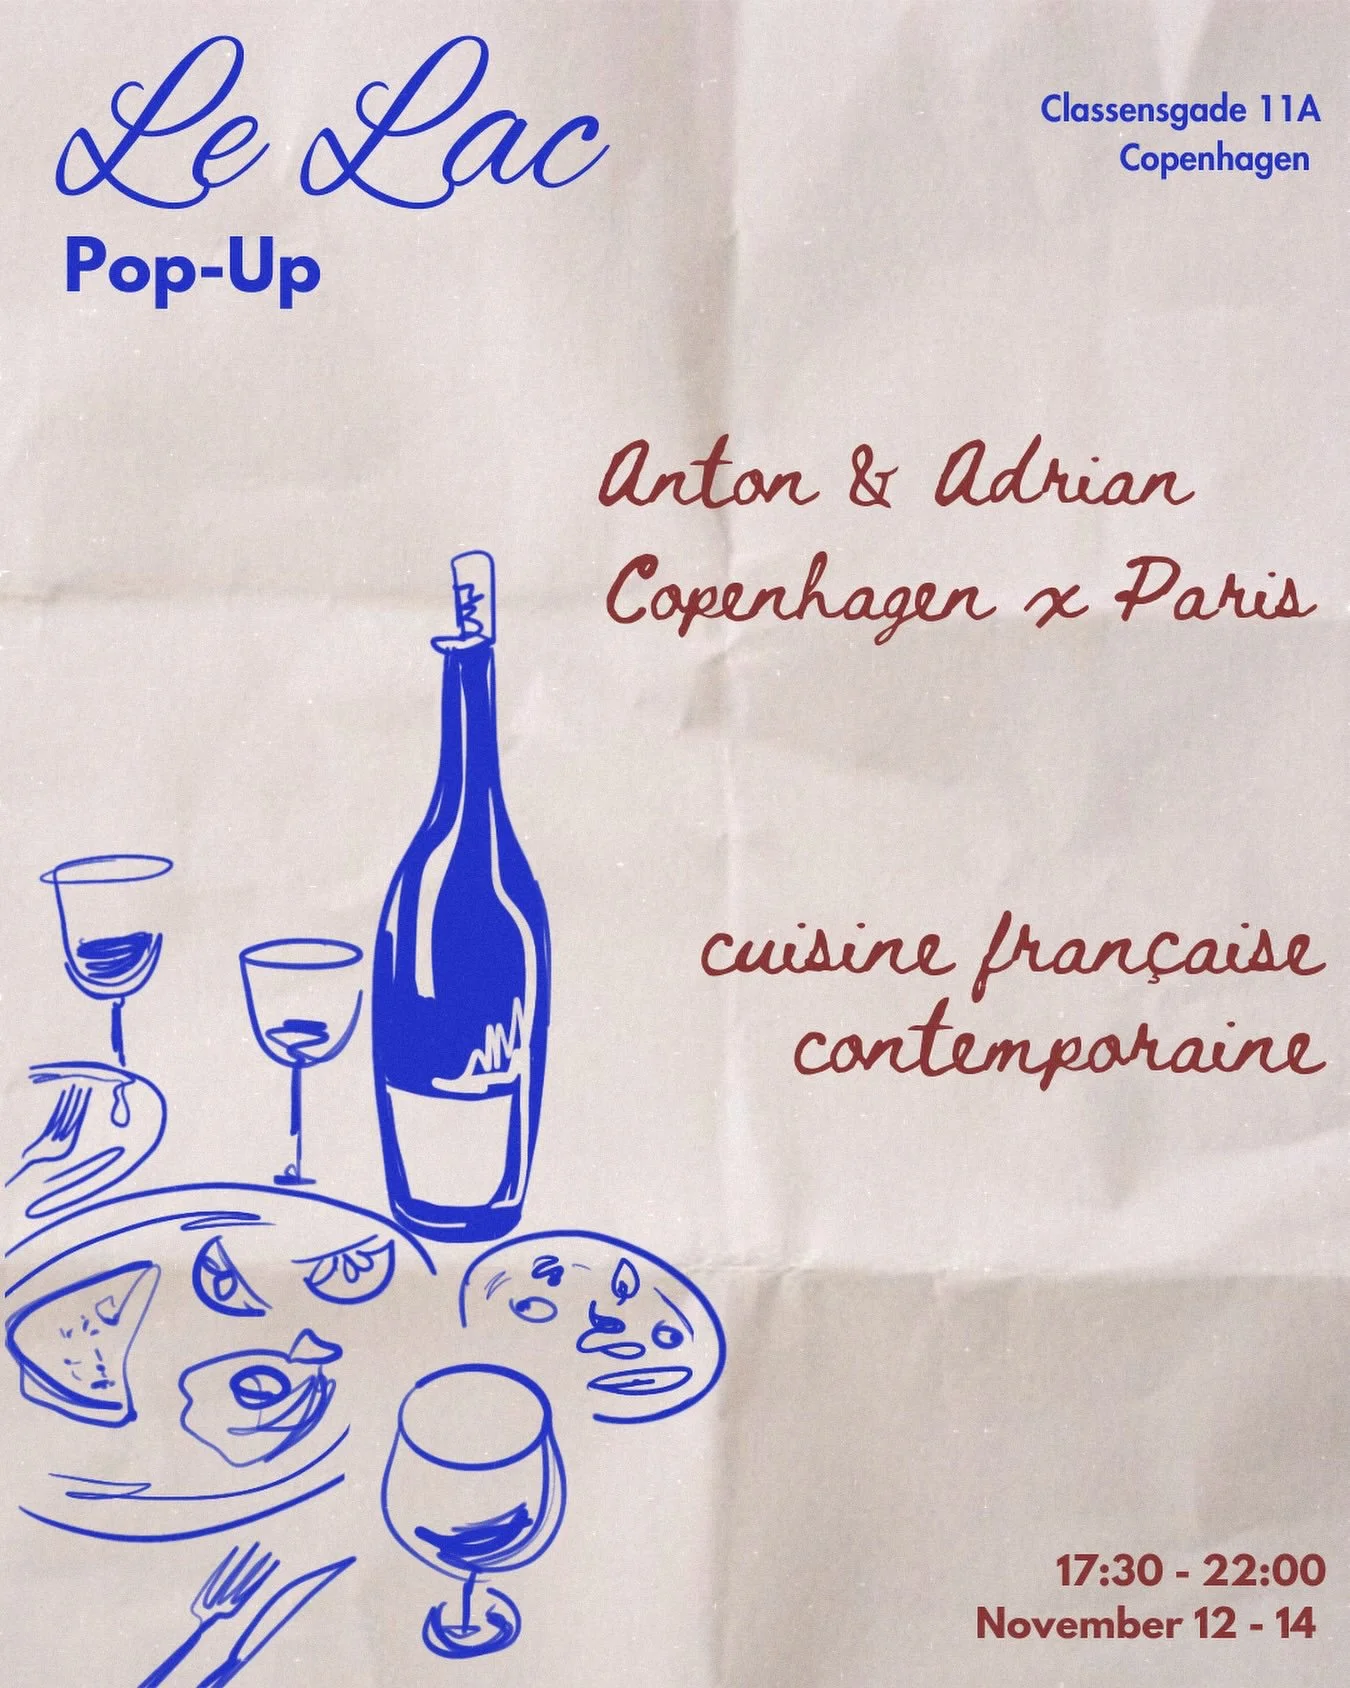 Le Lac
Pop-Up
Classensgade 11A
Copenhagen
Anton & Adrian
Copenhagen x Paris
cuisine française
contemporaine
17:30 - 22:00
November 12 - 14